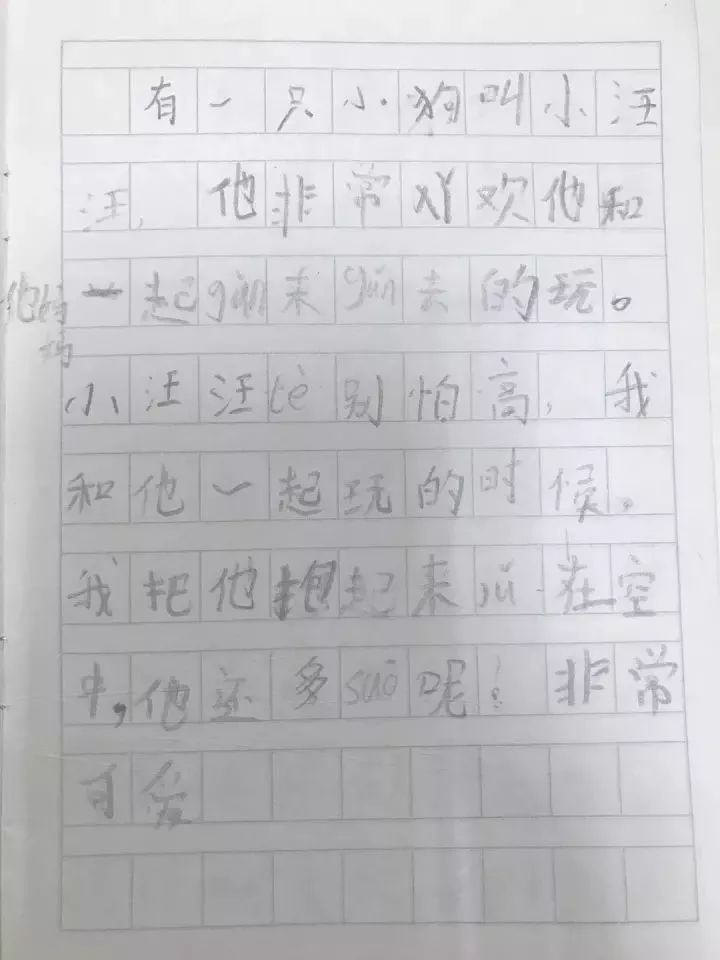 有一只小狗叫小汪
汪,他非常欢他和
他妈妈一起gǔn来gǔn去的玩。
小汪汪tè别怕高,我
和他一起玩的时候。
我把他抱起来在空
中,他还多suō呢!非常
可爱